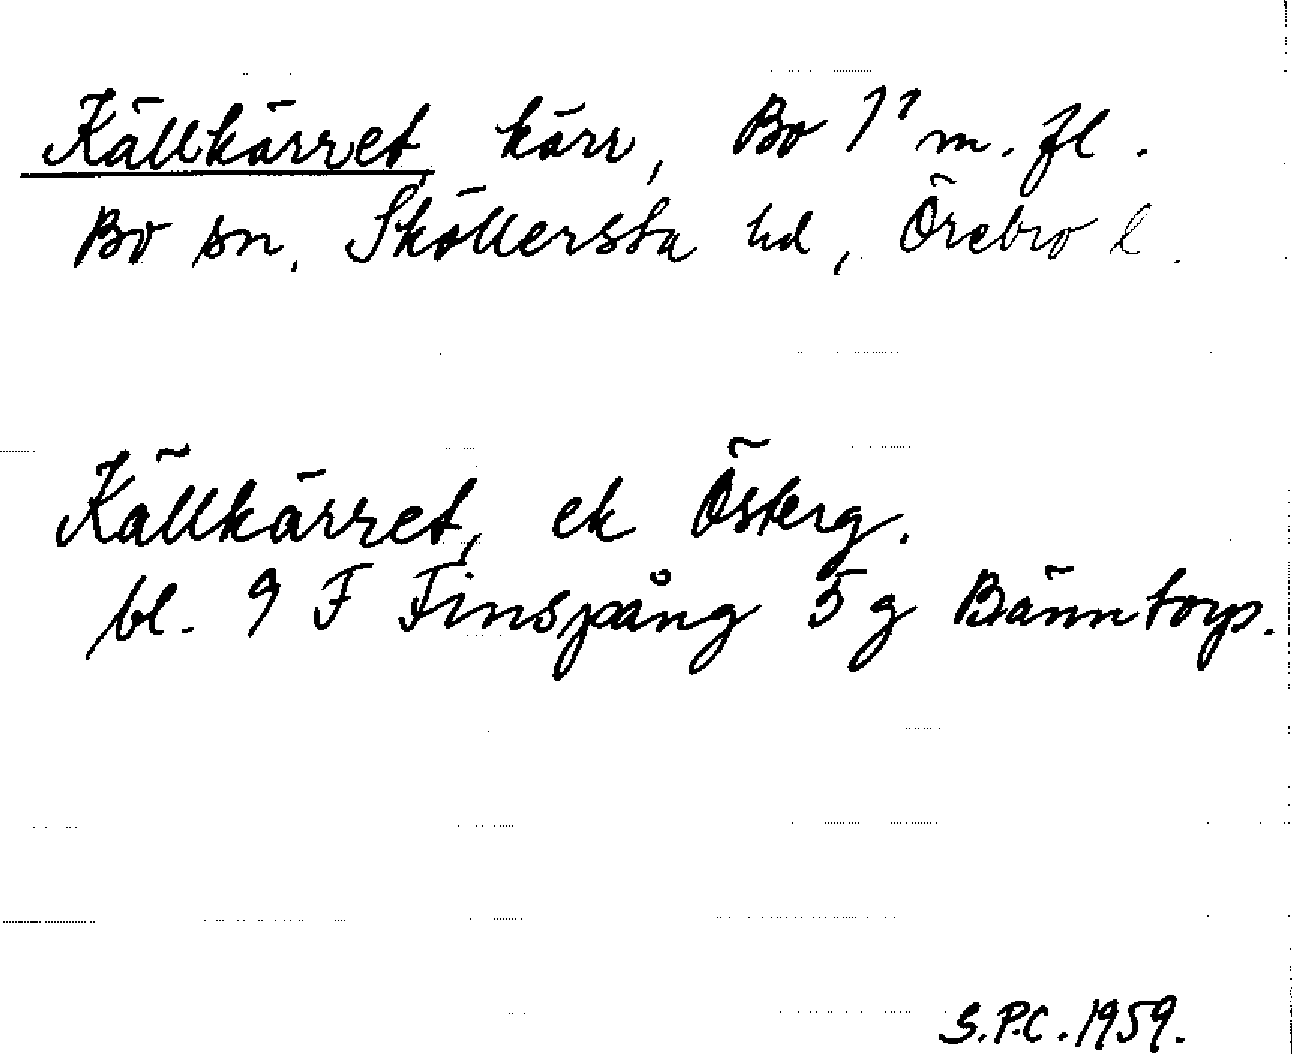 Källkärret, kärr, Bo 1¹ m. fl.
Bo sn, Sköllersta hd, Örebro l.
Källkärret, ek Österg.
bl. 9 F Finspång 5 g Bänntorp.
S.P.C. 1959.